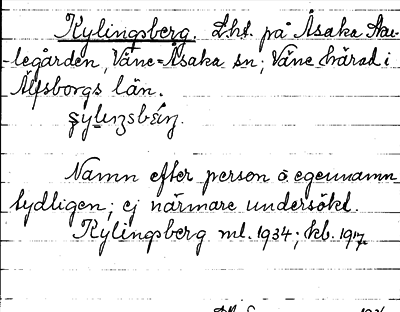 Kylingsberg. Lht. på Åsaka Sta-
legården, Väne-Åsaka sn; Väne härad i
Älfsborgs län.
Namn efter person å egennamn
tydligen; ej närmare undersökt.
Kylingsberg ml. 1934; kb. 1917